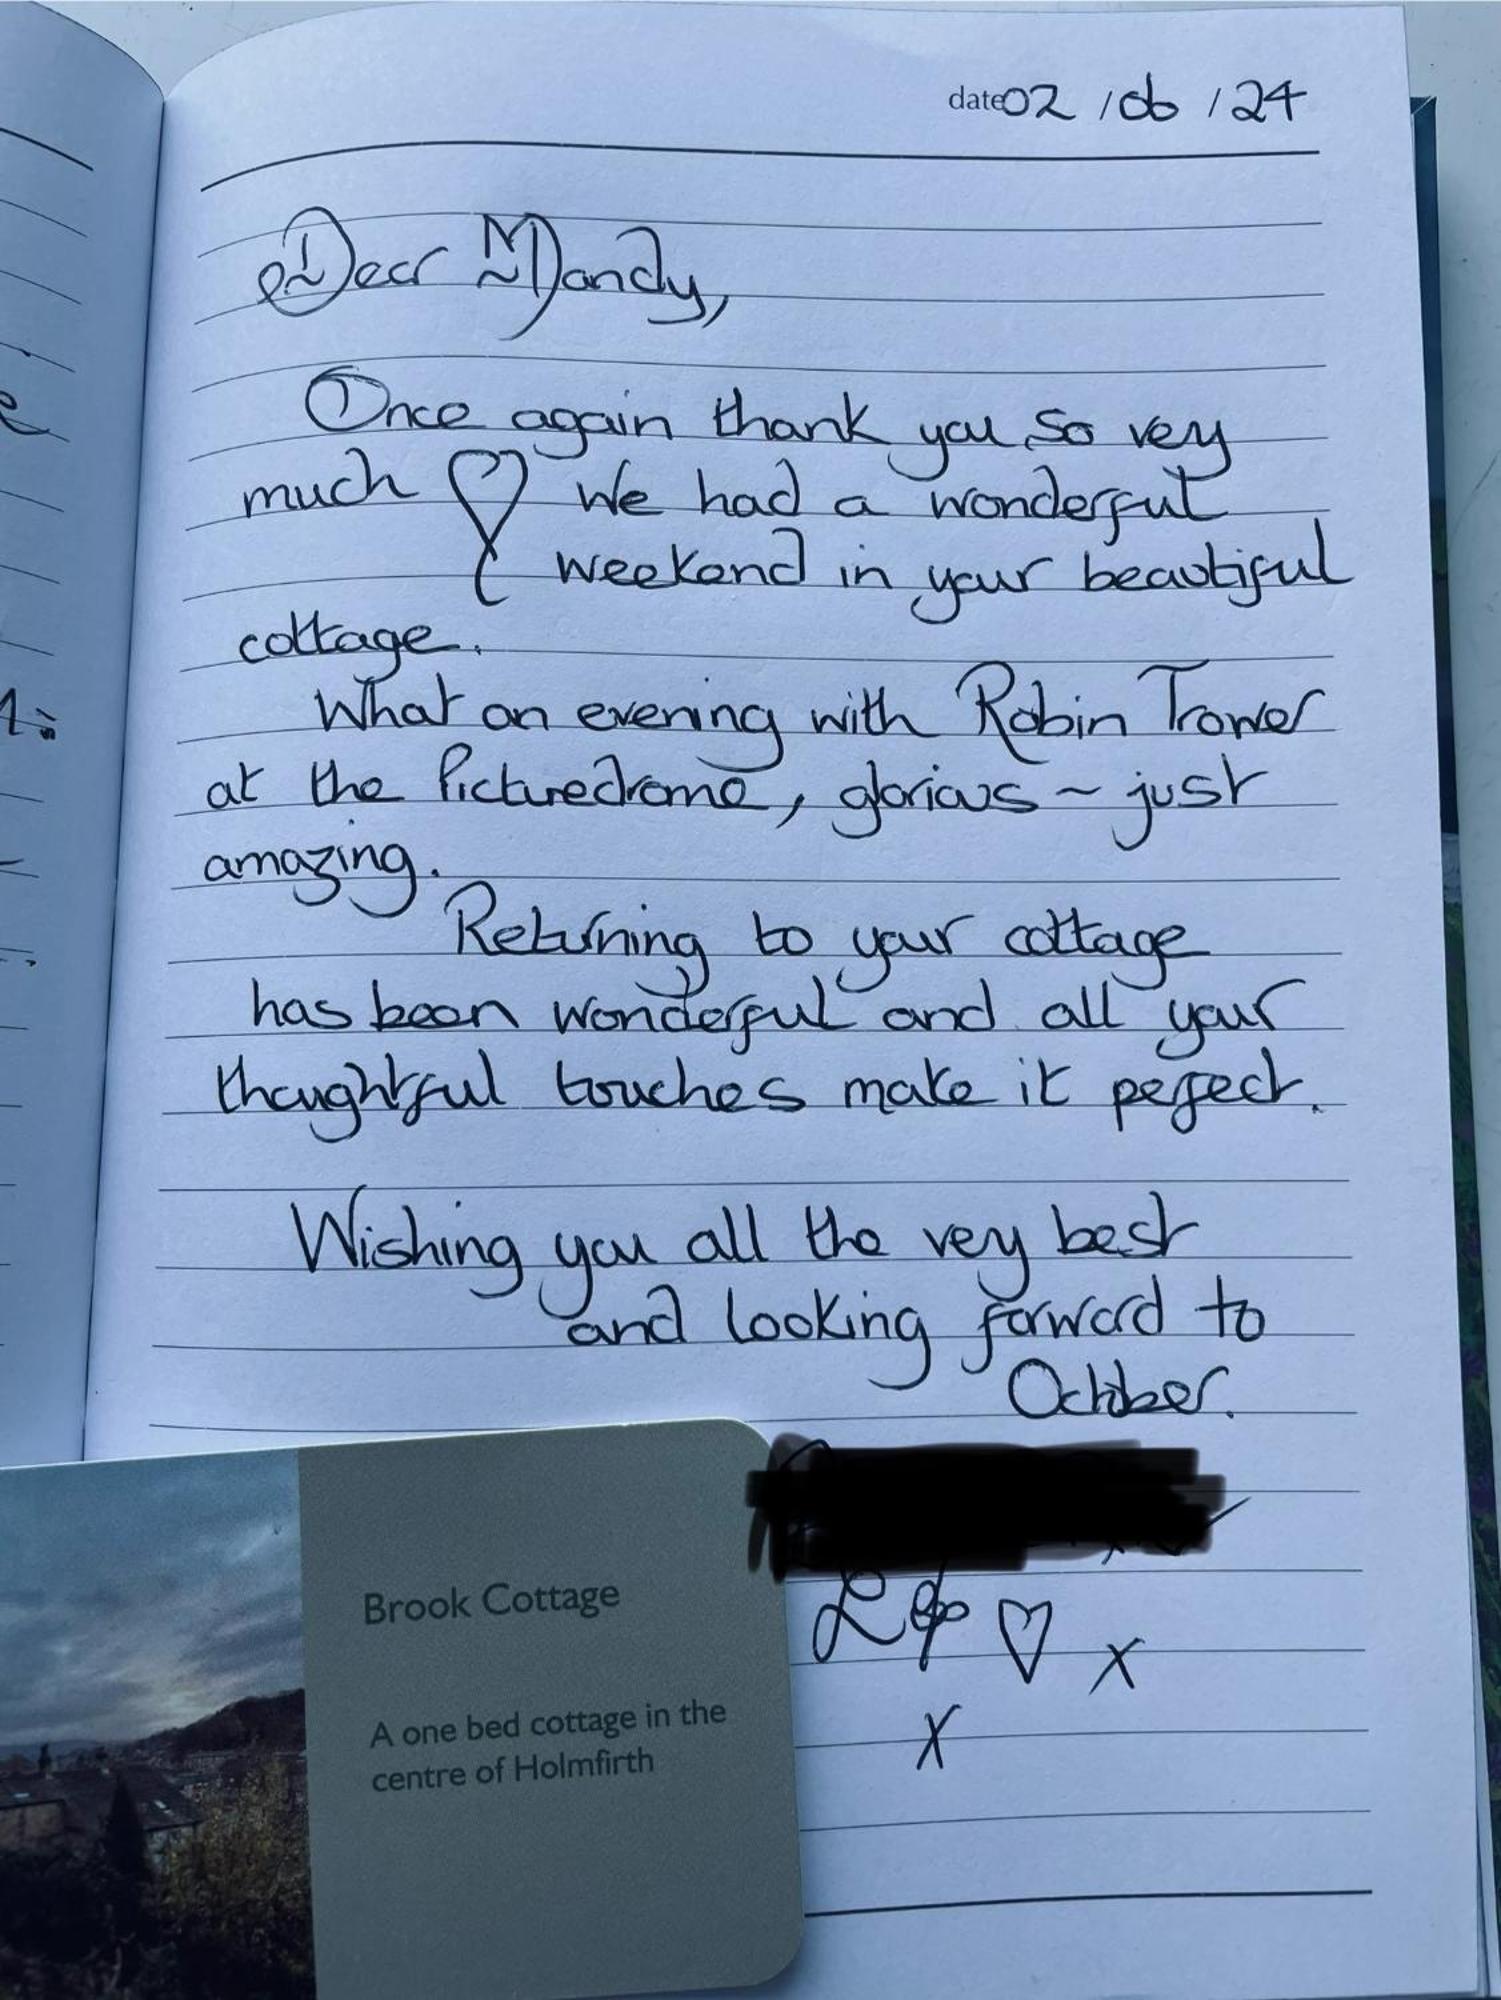 date 02 / 06 / 24
Dear Mandy,
Once again thank you so very
much ♡ We had a wonderful
weekend in your beautiful
cottage.
What an evening with Robin Trower
at the Picturedrome, glorious ~ just
amazing.
Returning to your cottage
has been wonderful and all your
thoughtful touches make it perfect.
Wishing you all the very best
and looking forward to
October.
♡ x
x
Brook Cottage
A one bed cottage in the
centre of Holmfirth